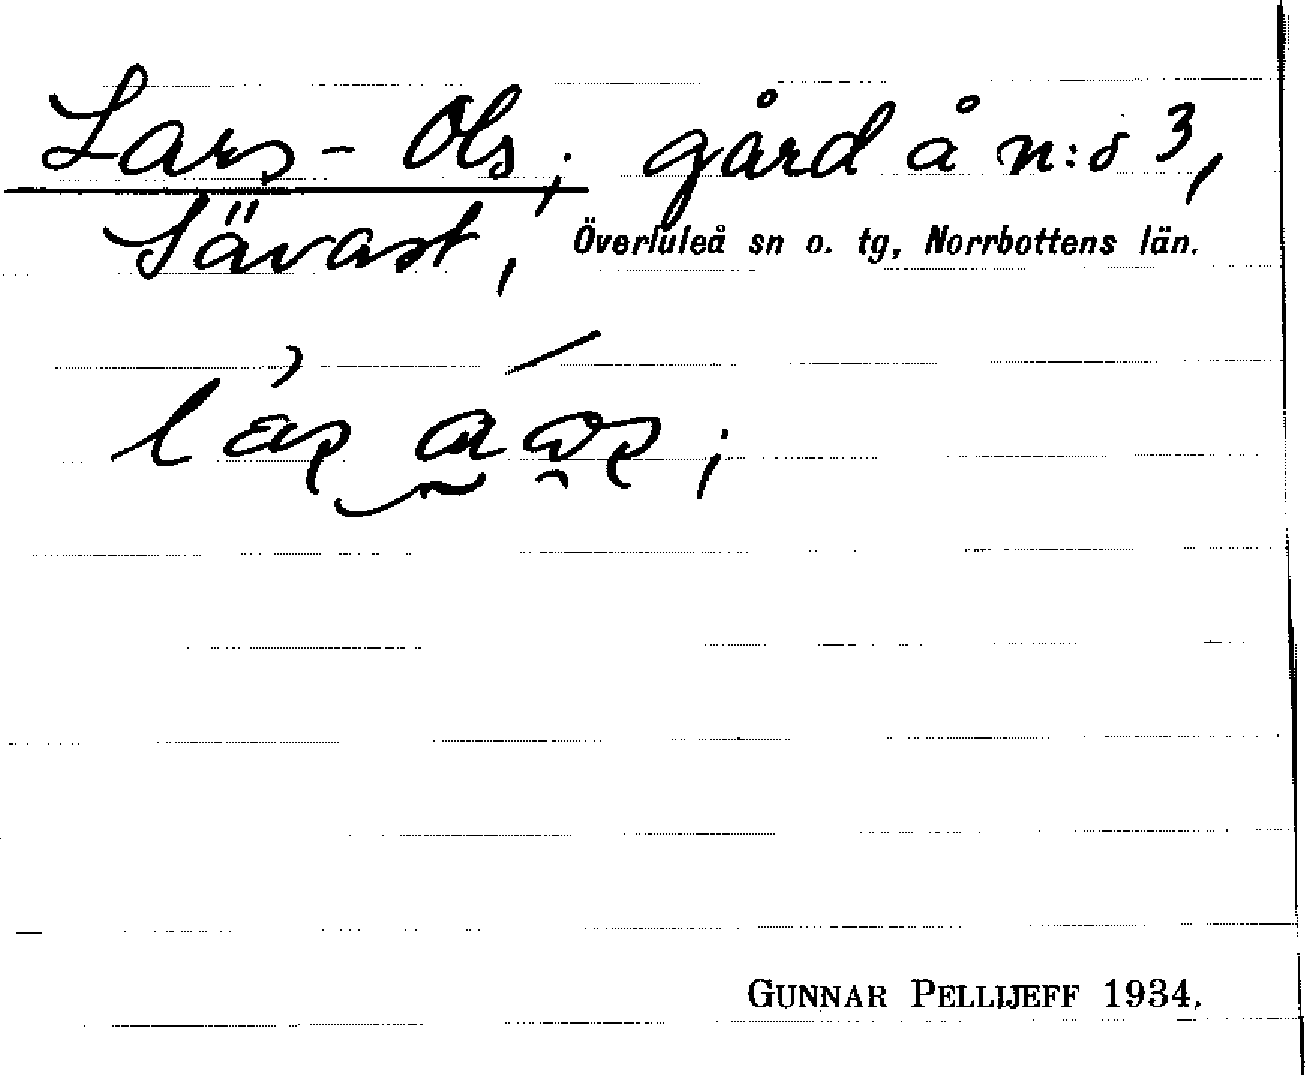 Lars-Ols; gård å n:o 3,
Sävast, Överluleå sn o. tg, Norrbottens län.
GUNNAR PELLIJEFF 1934.